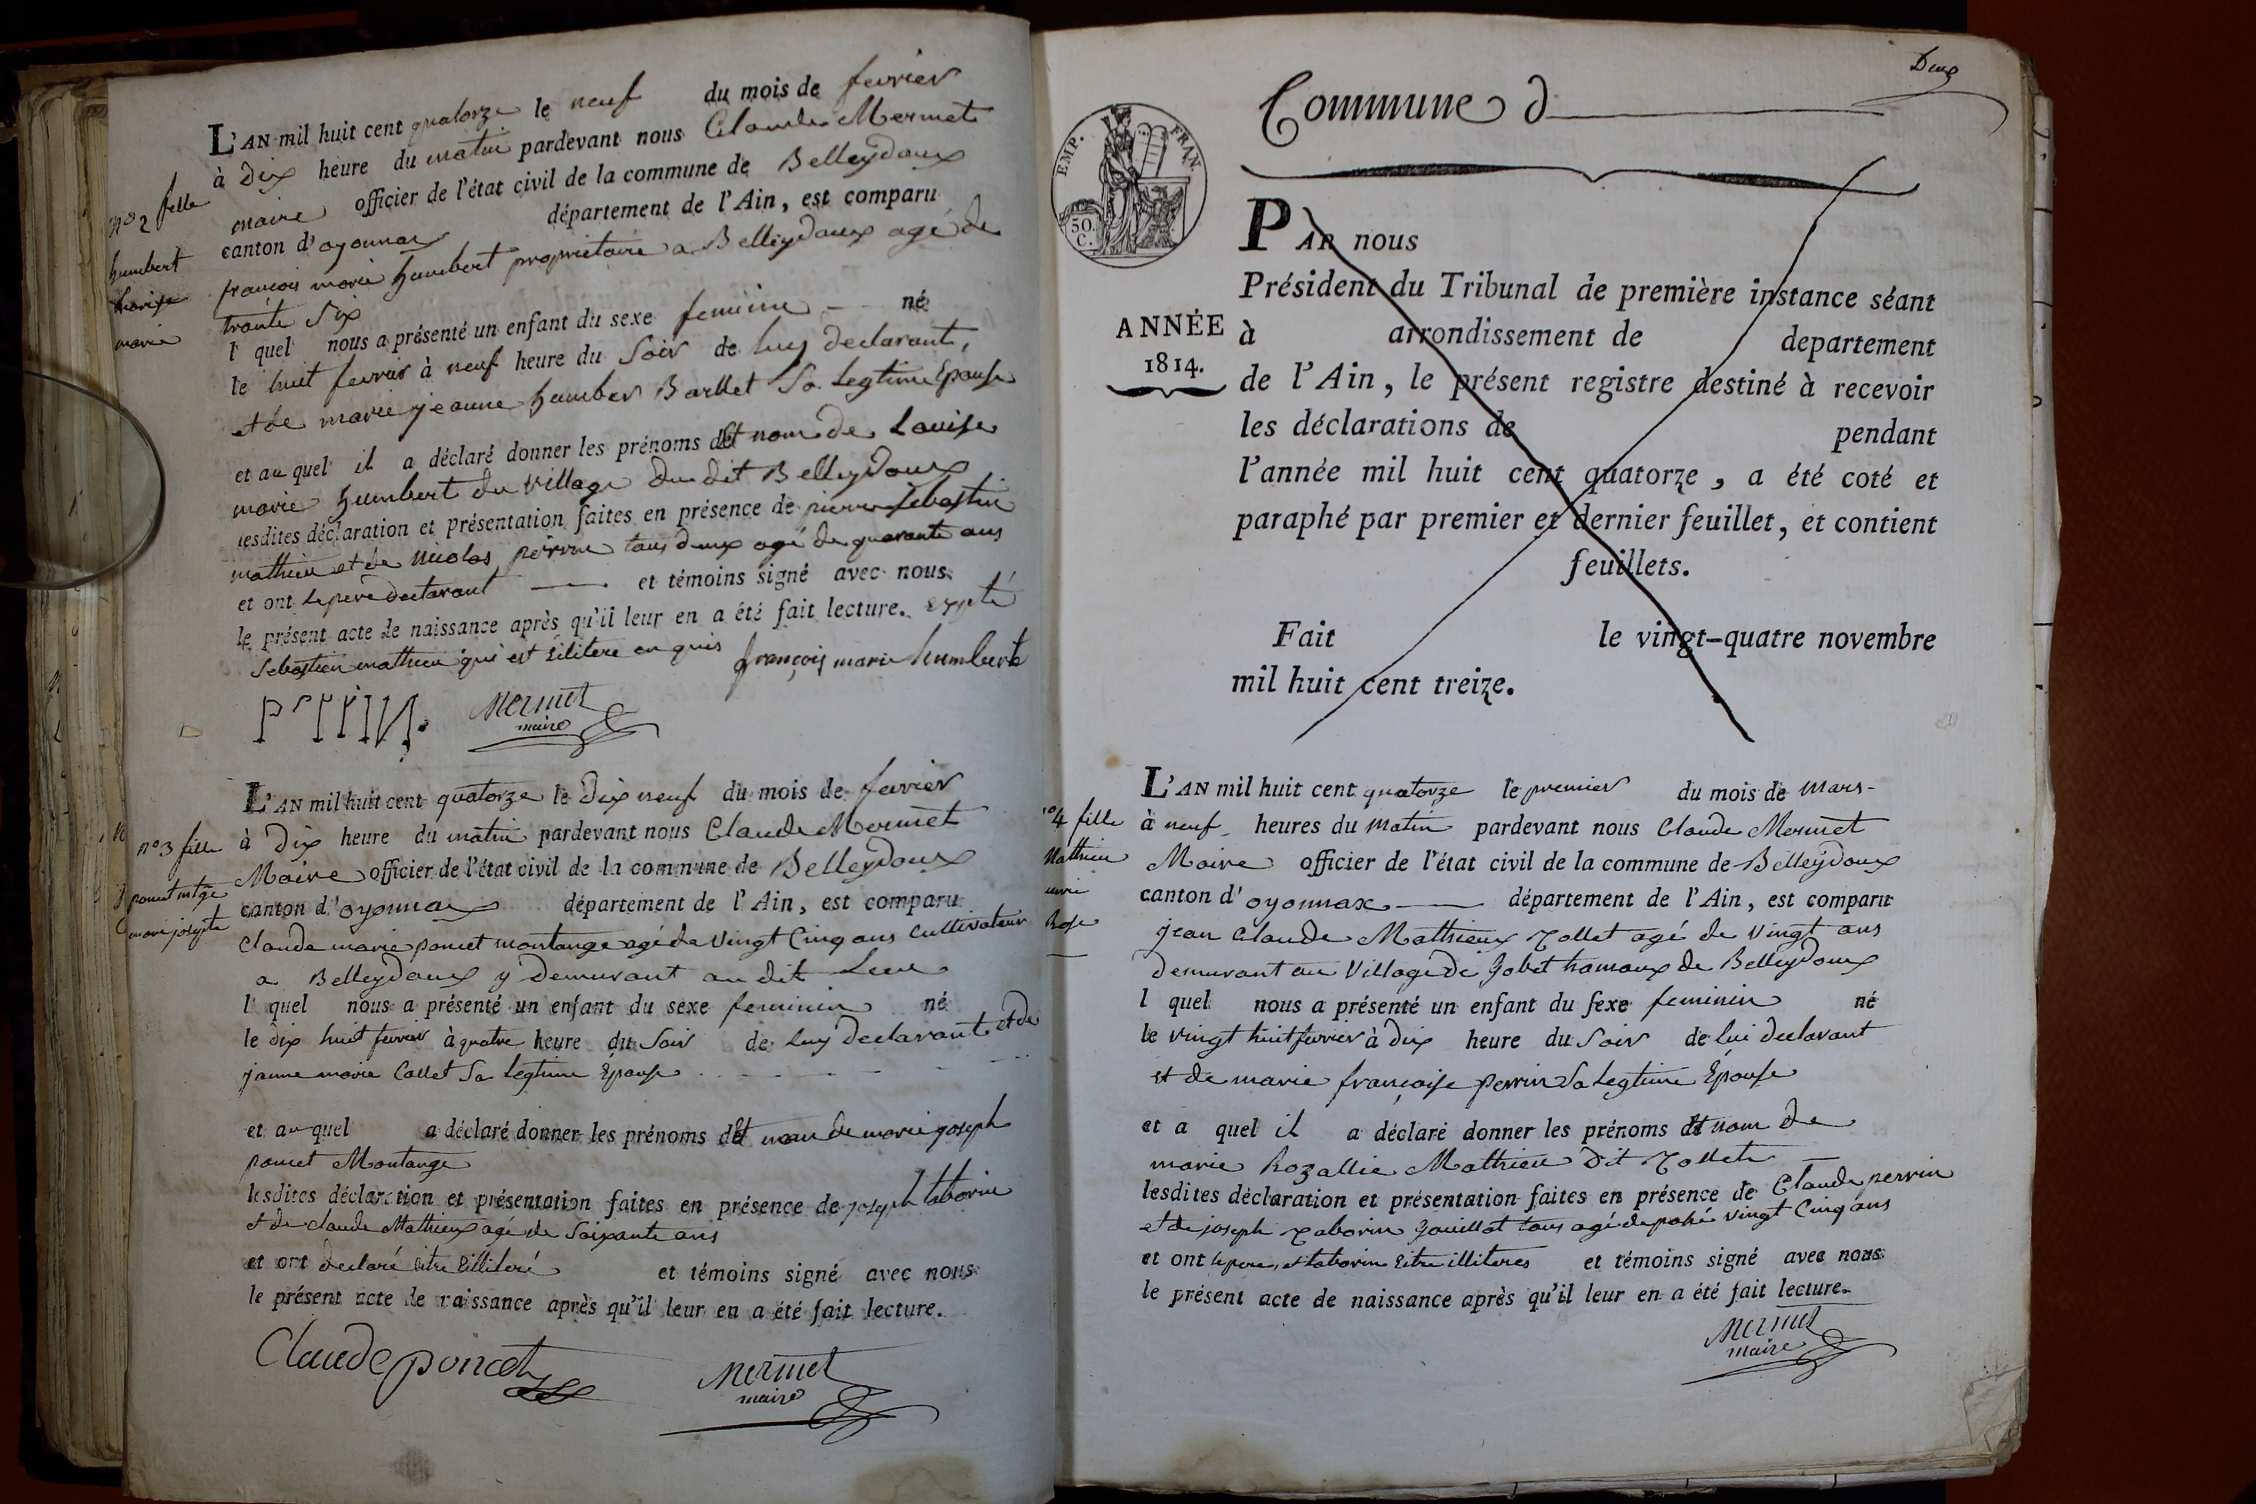 L'AN mil huit cent quatorze le neuf du mois de fevrier
à Dix heure du matin pardevant nous Claude Mermet
maire officier de l'état civil de la commune de Belleydoux
canton d'oyonnax département de l'Ain, est comparu
françois marie humbert propriétaire a Belleydoux agé de
trante Six
l quel nous a présenté un enfant du sexe feminin né
le huit fevrier à neuf heure du Soir de luy declarant,
et de marie jeanne humber Barlet Sa Legtime Epouse
et au quel il a déclaré donner les prénoms det nom de Louise
marie humbert du village du dit Belleydoux
lesdites déclaration et présentation faites en présence de pierre Sebastien
mathieu et de nicolas perrin tous deux agé de quarante ans
et ont le pere declarant et témoins signé avec nous
le présent acte de naissance après qu'il leur en a été fait lecture. expté
Sebastien mathieu qui est ililitere en quis
françois marie humbert
Mermet
maire
no 2 fille
humbert
Louise
marie
L'AN mil huit cent quatorze le Dix neuf du mois de fevrier
à Dix heure du matin pardevant nous Claude Mermet
Maire officier de l'état civil de la commune de Belleydoux
canton d'oyonnax département de l'Ain, est comparu
Claude marie poncet montange agé de vingt Cinq ans Cultivateur
a Belleydoux y demurant au dit Lieu
l quel nous a présenté un enfant du sexe feminin né
le dix huit fevrier à quatre heure du Soir de luy declarant et de
janne marie Collet Sa Legtime Epouse
et au quel a déclaré donner les prénoms det nom de marie joseph
poncet Montange
lesdites déclaration et présentation faites en présence de joseph taborin
et de claude Mathieux agé de Soixante ans
et ont declaré être illiteré et témoins signé avec nous
le présent acte de naissance après qu'il leur en a été fait lecture.
Claude poncet
Mermet
maire
no 3 fille
poncet mtge
marie josepte
Deux
Commune d
EMP. FRAN.
50.
C.
ANNÉE
1814.
PAR nous
Président du Tribunal de première instance séant
à arrondissement de departement
de l'Ain, le présent registre destiné à recevoir
les déclarations de pendant
l'année mil huit cent quatorze, a été coté et
paraphé par premier et dernier feuillet, et contient
feuillets.
Fait le vingt-quatre novembre
mil huit cent treize.
L'AN mil huit cent quatorze le premier du mois de Mars
à neuf heures du Matin pardevant nous Claude Mermet
Maire officier de l'état civil de la commune de Belleydoux
canton d'oyonnax département de l'Ain, est comparu
jean Claude Mathieux Tollet agé de Vingt ans
demurant au Village de Gobet hamaux de Belleydoux
l quel nous a présenté un enfant du sexe feminin né
le vingt huit fevrier à dix heure du Soir de lui declarant
et de marie françoise perrin Sa Legtime Epouse
et a quel il a déclaré donner les prénoms det nom de
marie Rozallie Mathieu dit Tollet
lesdites déclaration et présentation faites en présence de Claude perrin
et de joseph Taborin Gouillot tous agé de vingt Cinq ans
et ont le pere, et taborin Etre illiteres et témoins signé avec nous
le présent acte de naissance après qu'il leur en a été fait lecture.
Mermet
maire
no 4 fille
Mathieu
marie
Rose